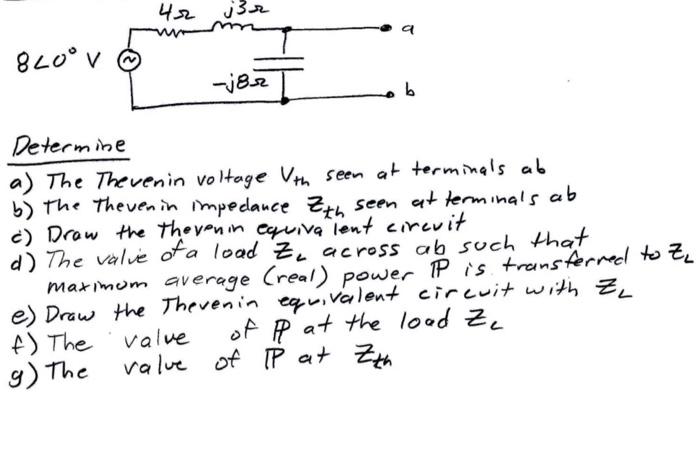 4Ω j3Ω
a
8∠0° V
-j8Ω
b
Determine
a) The Thevenin voltage Vth seen at terminals ab
b) The Thevenin impedance Zth seen at terminals ab
c) Draw the Thevenin equivalent circuit
d) The value of a load ZL across ab such that
maximum average (real) power P is transferred to ZL
e) Draw the Thevenin equivalent circuit with ZL
f) The value of P at the load ZL
g) The value of P at Zth